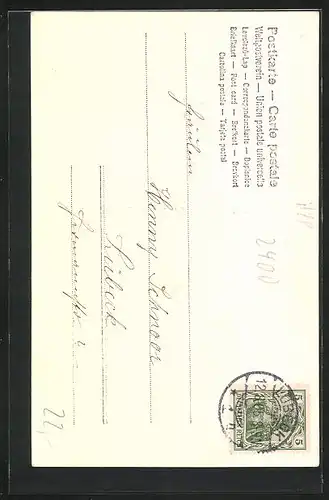 Postkarte — Carte postale
Weltpostverein — Union postale universelle
Levelező-Lap — Correspondenzkarte — Dopisnice
Briefkaart — Post card — Brefkort — Brevkort
Cartolina postale — Tarjeta postal
Fräulein
Henny Schnoor
Lübeck
2400
22,-
LÜBECK
12
5
5
DEUTSCHES REICH